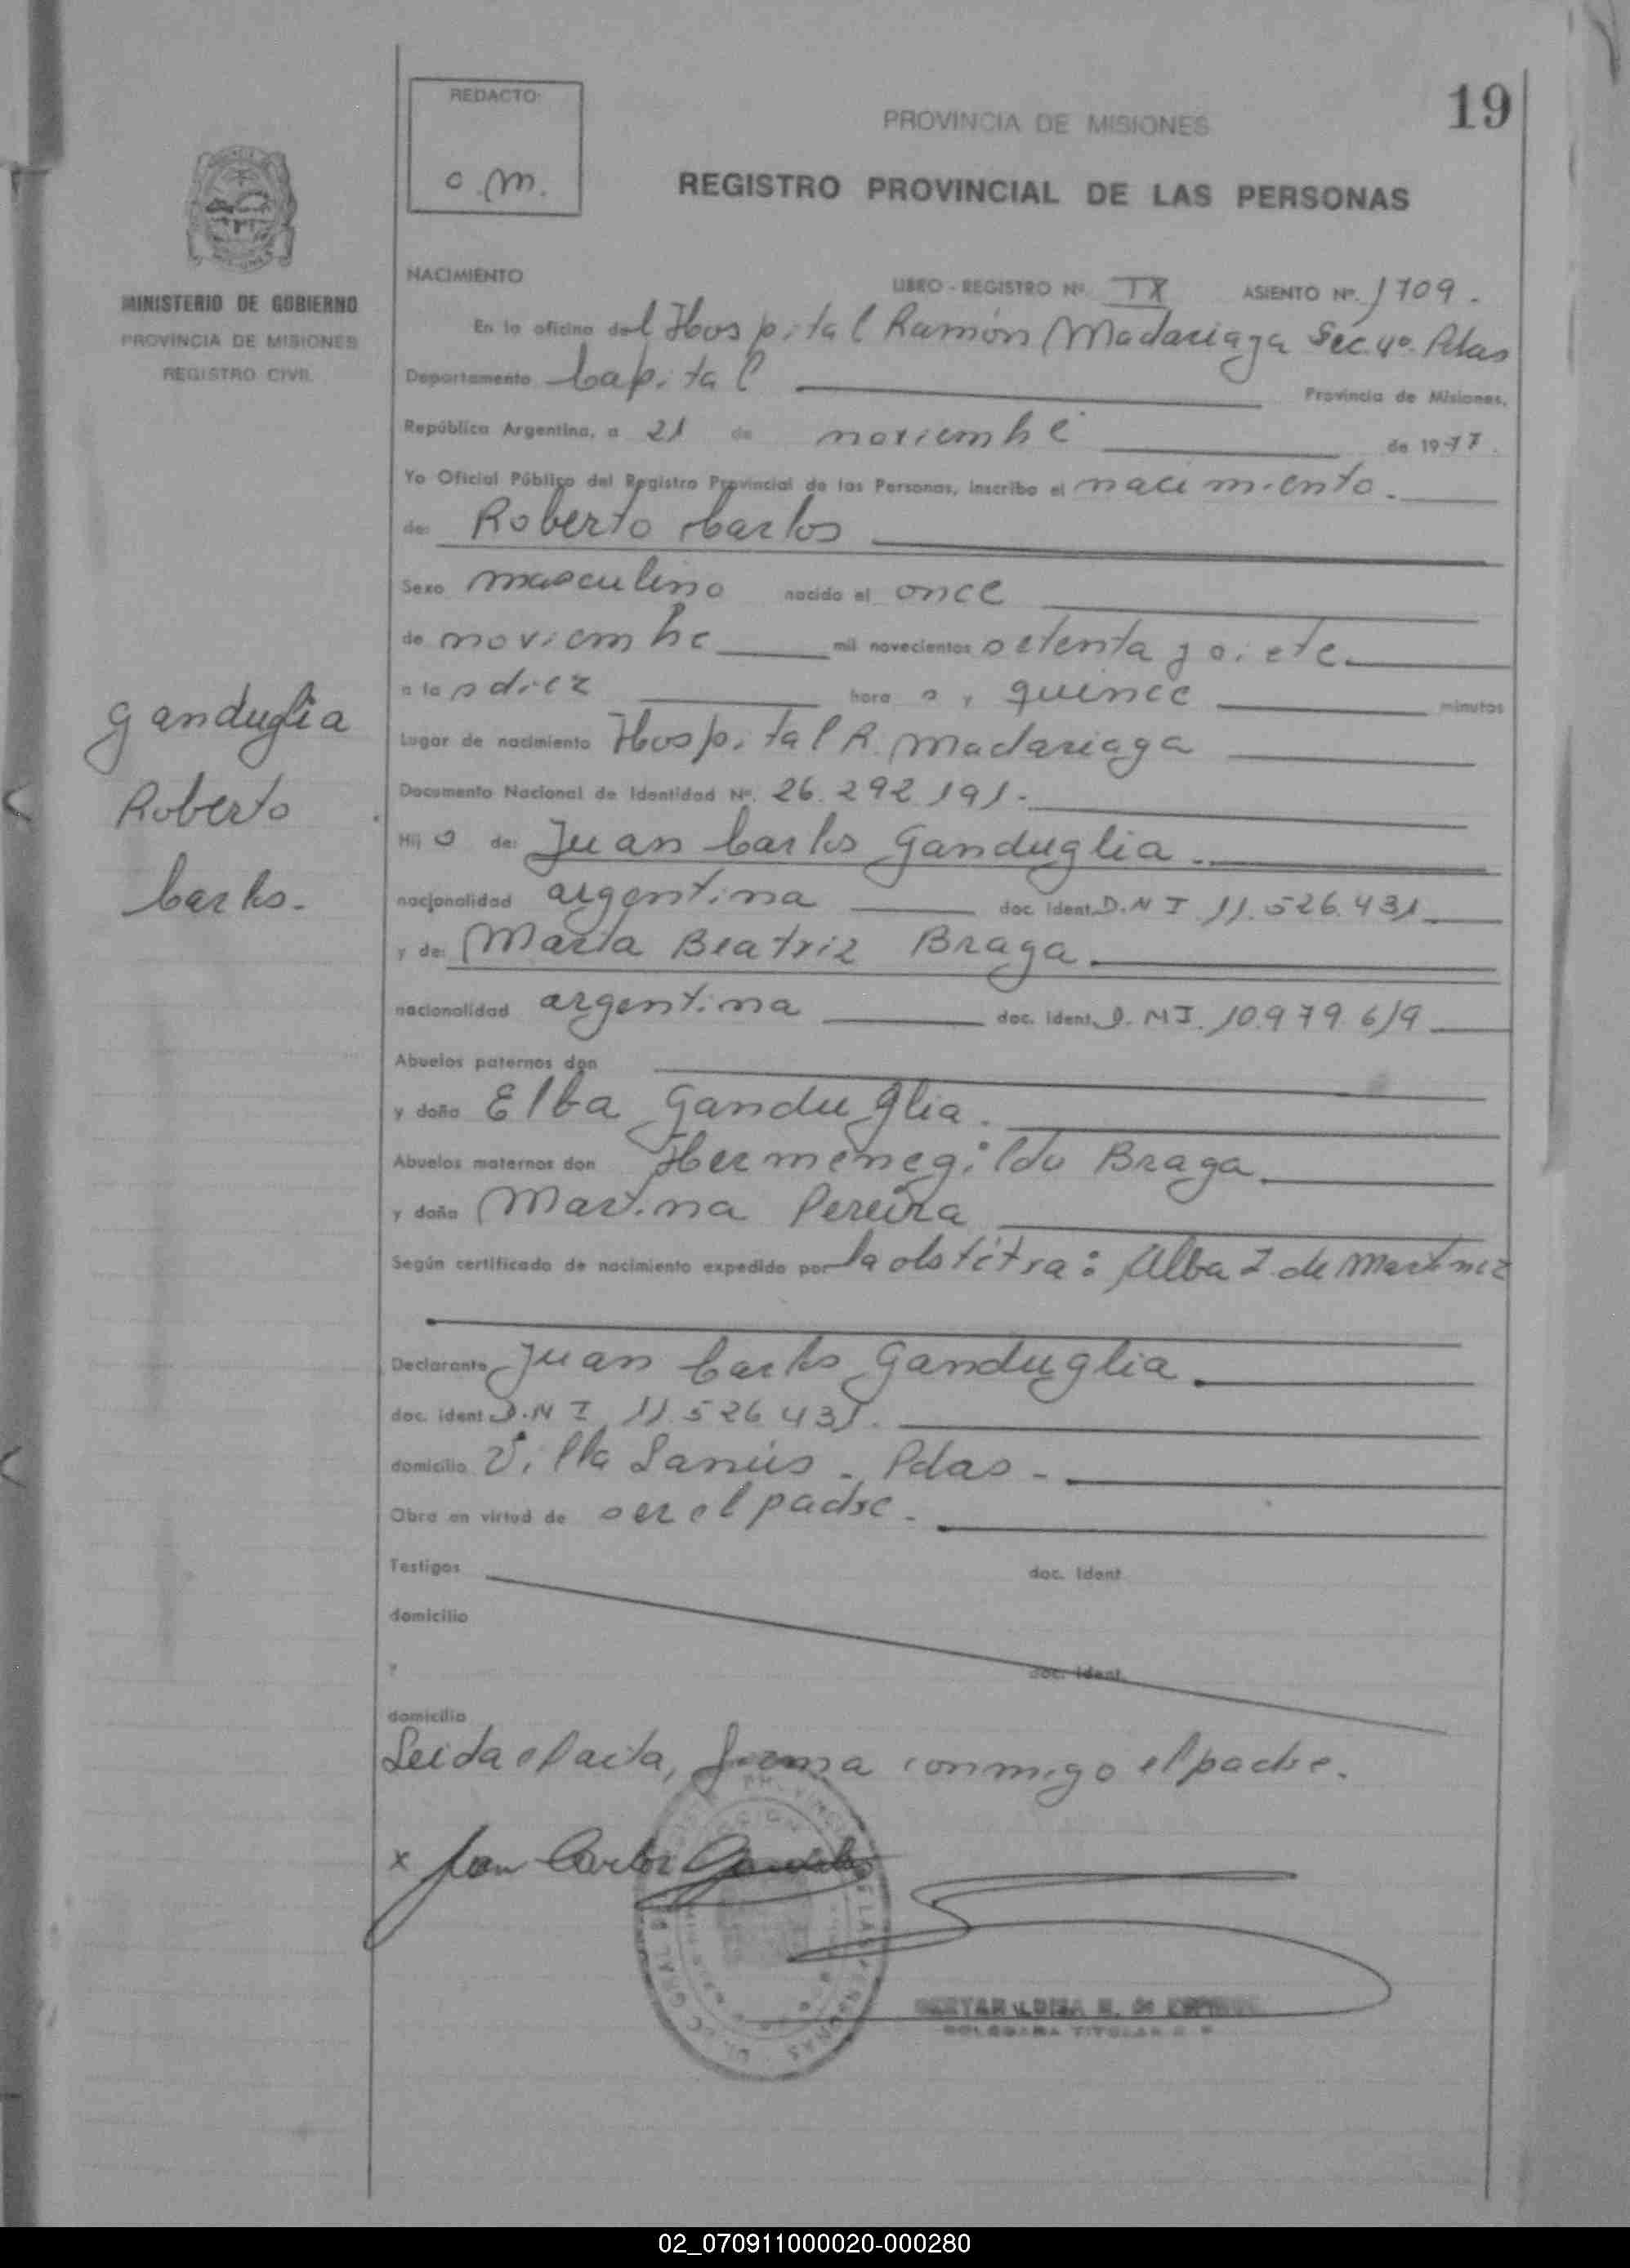 REDACTO:
o.m.
19
PROVINCIA DE MISIONES
REGISTRO PROVINCIAL DE LAS PERSONAS
MINISTERIO DE GOBIERNO
PROVINCIA DE MISIONES
REGISTRO CIVIL
NACIMIENTO LIBRO - REGISTRO Nº IX ASIENTO Nº. 1709.
En la oficina del Hospital Ramón Madariaga Sec. 4º. Pdas
Departamento Capital Provincia de Misiones,
República Argentina, a 21 de noviembre de 1977.
Yo Oficial Público del Registro Provincial de las Personas, inscribo el nacimiento.
de: Roberto Carlos
Sexo masculino nacido el once
de noviembre mil novecientos setenta y siete.
a las diez hora s y quince minutos
Ganduglia
Roberto
Carlos.
Lugar de nacimiento Hospital R. Madariaga
Documento Nacional de Identidad Nº. 26.292.191.
Hij o de: Juan Carlos Ganduglia.
nacionalidad argentina doc. ident. D.N.I 11.526.431
y de: Maria Beatriz Braga.
nacionalidad argentina doc. ident. D.N.I. 10.979.619
Abuelos paternos don
y doña Elba Ganduglia.
Abuelos maternos don Hermenegildo Braga.
y doña Martina Pereira
Según certificado de nacimiento expedido por la obstétra: Alba I. de Martinez
Declarante Juan Carlos Ganduglia.
doc. ident. D.N.I 11.526.431.
domicilio Villa Lanús - Pdas -
Obra en virtud de ser el padre.
Testigos doc. ident.
domicilio
y doc. ident.
domicilio
Leida el acta, firma conmigo el padre.
x Juan Carlos Ganduglia
02_070911000020-000280